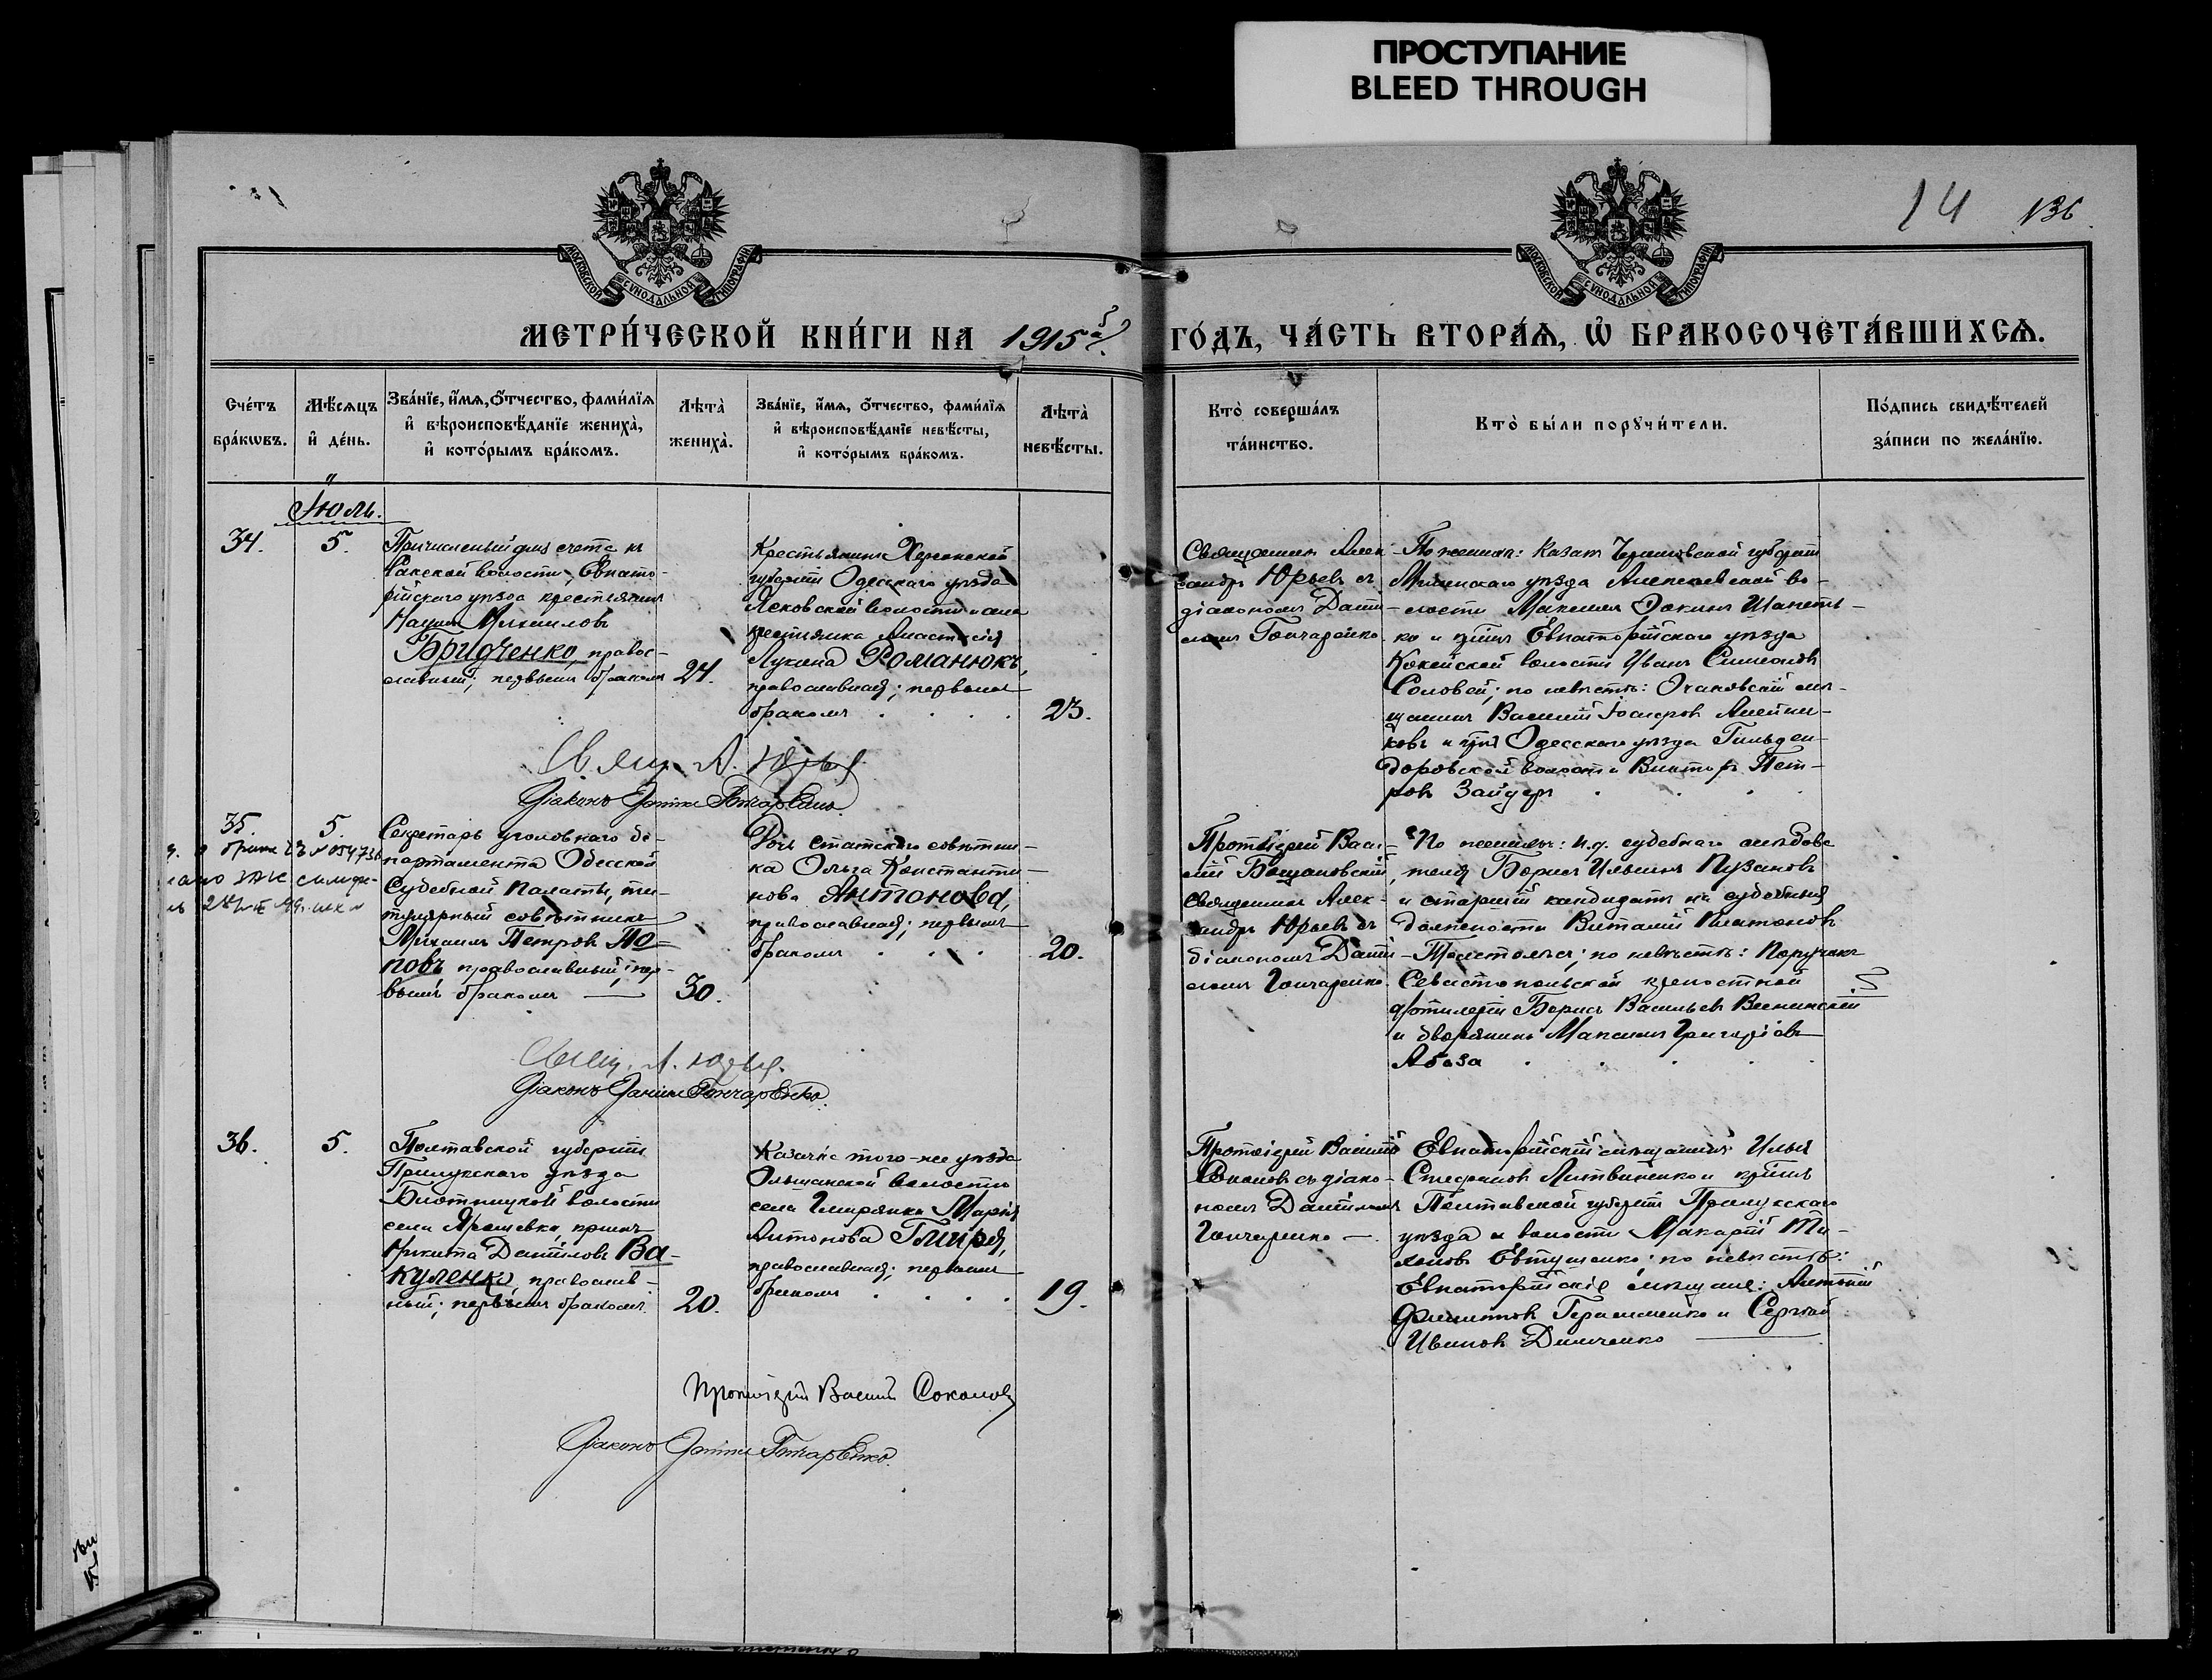 ПРОСТУПАНИЕ
BLEED THROUGH
14 136
МОСКОВСКОЙ СУНОДАЛЬНОЙ ТИПОГРАФІИ
МОСКОВСКОЙ СУНОДАЛЬНОЙ ТИПОГРАФІИ
МЕТРИ́ЧЕСКОЙ КНИ́ГИ НА 1915й
ГО́ДЪ, ЧА́СТЬ ВТОРА́Ѧ, Ѡ҆ БРАКОСОЧЕТА́ВШИХСѦ.
Сче́тъ бра́кѡвъ.
Мѣ́сѧцъ и҆ де́нь.
Зва́нїе, и҆́мѧ, ѻ҆́тчество, фами́лїѧ
и҆ вѣроисповѣ́данїе жениха̀,
и҆ кото́рымъ бра́комъ.
Лѣта̀ жениха̀.
Зва́нїе, и҆́мѧ, ѻ҆́тчество, фами́лїѧ
и҆ вѣроисповѣ́данїе невѣ́сты,
и҆ кото́рымъ бра́комъ.
Лѣта̀ невѣ́сты.
Кто̀ соверша́лъ
та́инство.
Кто̀ бы́ли порꙋчи́тели.
По́дпись свидѣ́телей
за́писи по жела́нїю.
Іюль.
34.
5.
Причисленный для счета къ
Сакской волости, Евпато-
рійского уѣзда крестьянинъ
Наумъ Михаиловъ
Бридченко, правос-
лавный; первымъ бракомъ
24.
Крестьянина Херсонской
губерніи Одесскаго уѣзда
Ясковской волости и села
крестьянка Анастасія
Лукина Романюкъ,
православная; первымъ
бракомъ
23.
Священникъ Алек-
сандръ Юрьевъ съ
діакономъ Дані-
иломъ Гончаренко
По женихѣ: Казакъ Черниговской губерніи
Мглинскаго уѣзда Алексѣевской во-
лости Максимъ Шапеть-
ко и крнъ Евпаторійскаго уѣзда
волости Иванъ Симеоновъ
Соловей; по невѣстѣ: Очаковскій мѣ-
щанинъ Василій Алейни-
ковъ и крнъ Одесскаго уѣзда Гильден-
дорфской волости Викторъ Пет-
ровъ Зайдеръ
Свящ. А. Юрьев
Діаконъ Даніилъ Гончаренко
35.
5.
Секретарь уголовнаго де-
партамента Одесской
Судебной Палаты, ти-
тулярный совѣтникъ
Михаилъ Петровъ По-
повъ православный; пер-
вымъ бракомъ
30.
Дочь статскаго совѣтни-
ка Ольга Константи-
нова Антонова,
православная; первымъ
бракомъ
20.
Протоіерей Васи-
лій Бощановскій,
священникъ Алек-
сандръ Юрьевъ съ
діакономъ Дані-
иломъ Гончаренко.
По женихѣ: и.д. судебнаго слѣдова-
теля Борисъ Ильинъ Пузановъ
и старшій кандидатъ на судебныя
должности Виталій Платоновъ
Толстолѣсъ; по невѣстѣ: Поручикъ
Севастопольской крѣпостной
артилеріи Борисъ Васильевъ
и дворянинъ Максимъ Григоріевъ
Абаза
Свящ. А. Юрьев.
Діаконъ Даніилъ Гончаренко.
36.
5.
Полтавской губерніи
Прилукскаго уѣзда
волости
села Ярошевка, крнинъ
Никита Даніиловъ Ва-
куленко, православ-
ный; первымъ бракомъ
20.
Казачка того-же уѣзда
Ольшанской волости
села Гмирянка Марія
Антонова Гмиря,
православная; первымъ
бракомъ
19.
Протоіерей Василій
Соколовъ съ діако-
номъ Даніиломъ
Гончаренко
Евпаторійскій мѣщанинъ Илья
Стефановъ Литвиненко и крнинъ
Полтавской губерніи Прилукскаго
уѣзда и волости Макарій Ти-
моновъ Евтушенко; по невѣстѣ:
Евпаторійскіе мѣщане: Антоній
Филиповъ Герасименко и Сергѣй
Ивановъ Димченко
Протоіерей Василій Соколовъ
Діаконъ Даніилъ Гончаренко.